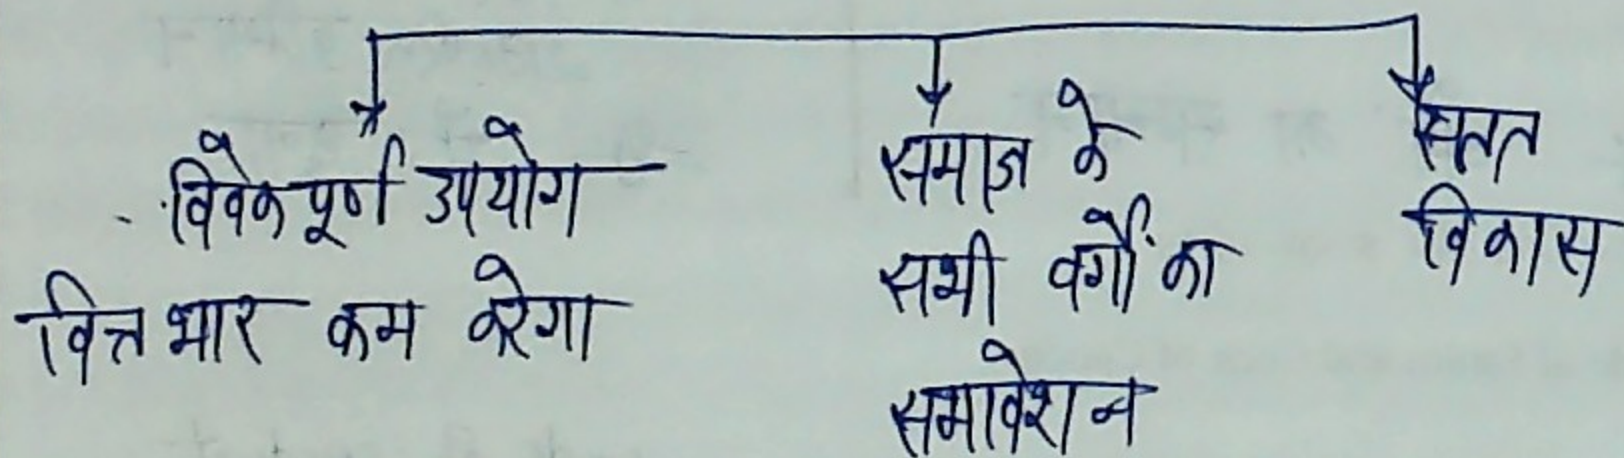 विवेकपूर्ण उपयोग
वित्त भार कम करेगा
समाज के
सभी वर्गों का
समावेशन
सतत
विकास